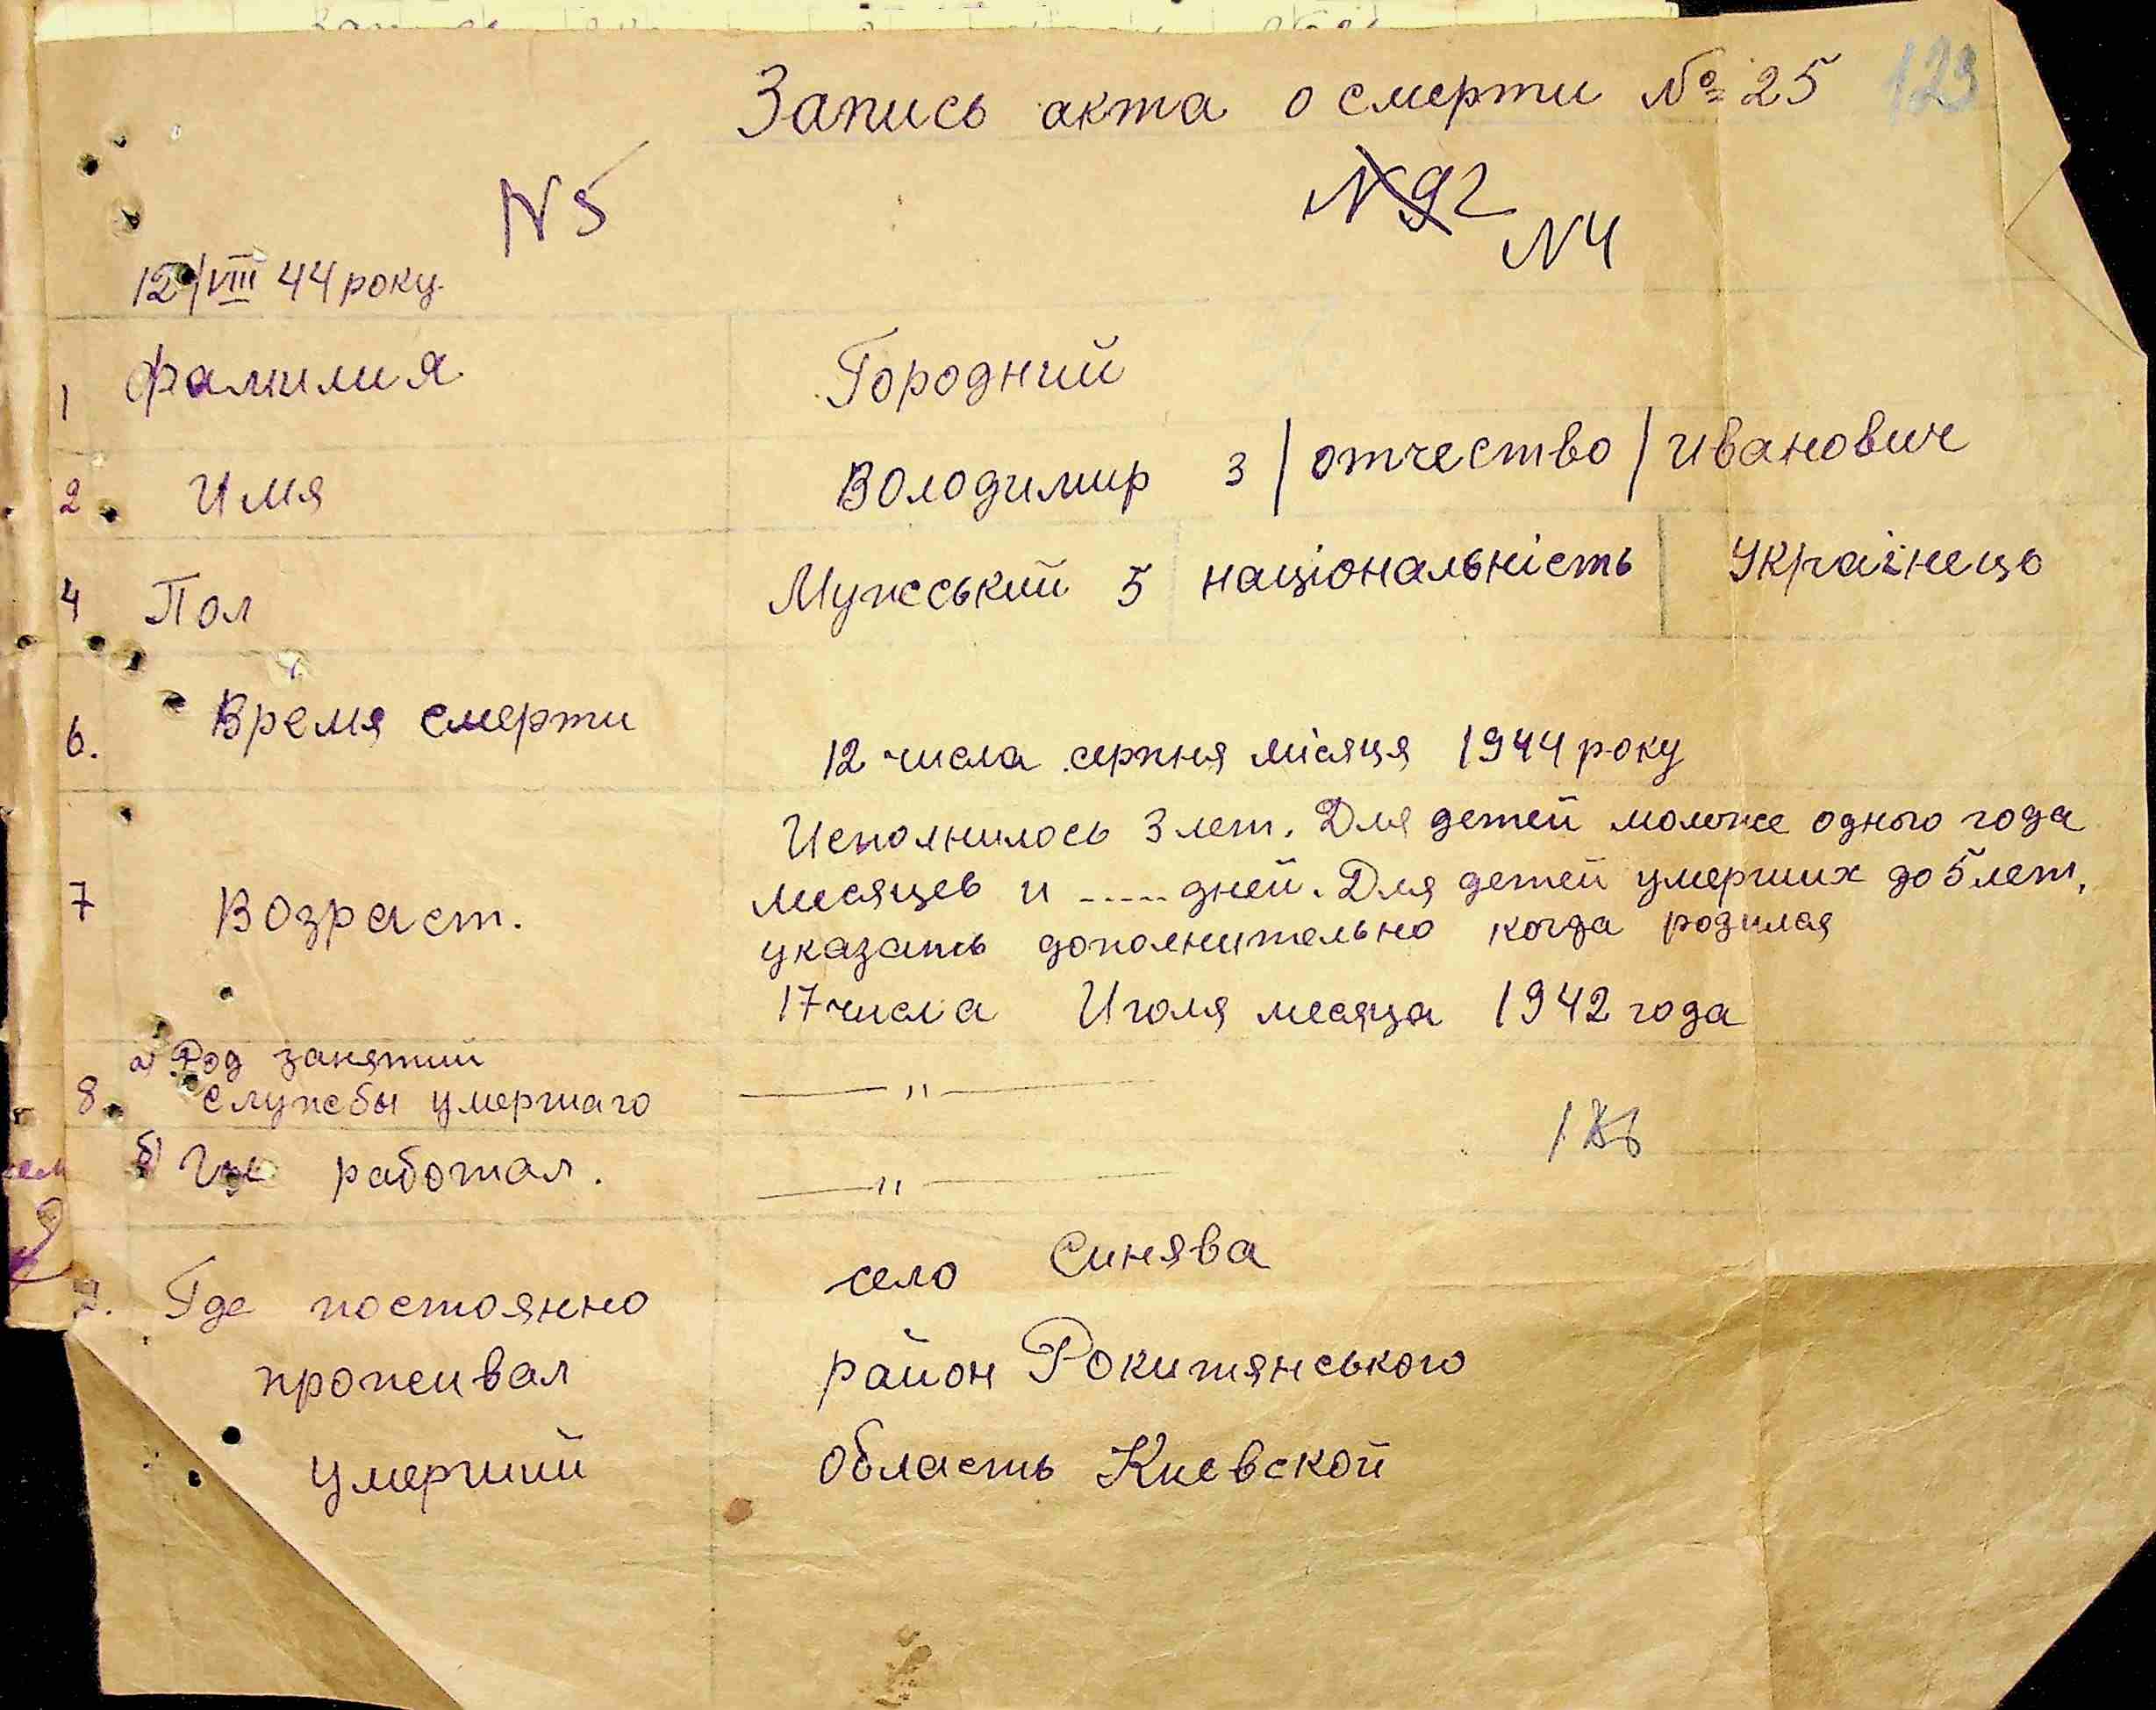 Запись акта о смерти № 25 123
N 5
N 92
N 4
12/VIII 44 року
1 фамилия Городний
2 Имя Володимир 3 / отчество / Иванович
4 Пол Мужський 5 національність Українець
6. Время смерти 12 числа серпня місяця 1944 року
7 Возраст. Исполнилось 3 лет. Для детей моложе одного года
месяцев и ..... дней. Для детей умерших до 5 лет,
указать дополнительно когда родилая
17 числа Июля месяца 1942 года
8. а) Род занятий
службы умершаго — " —
б) Где работал. — " —
9. Где постоянно село Синява
проживал район Рокитянського
умерший область Киевской